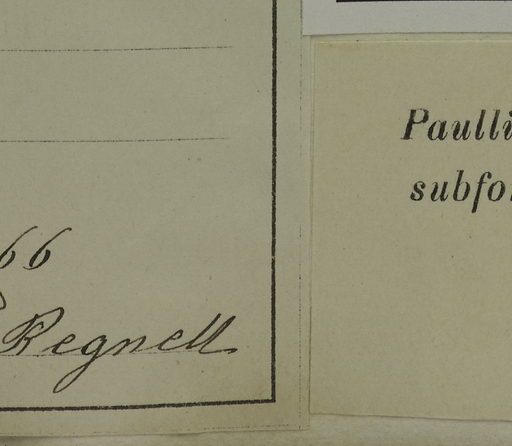 66
Regnell
Paulli
subfo